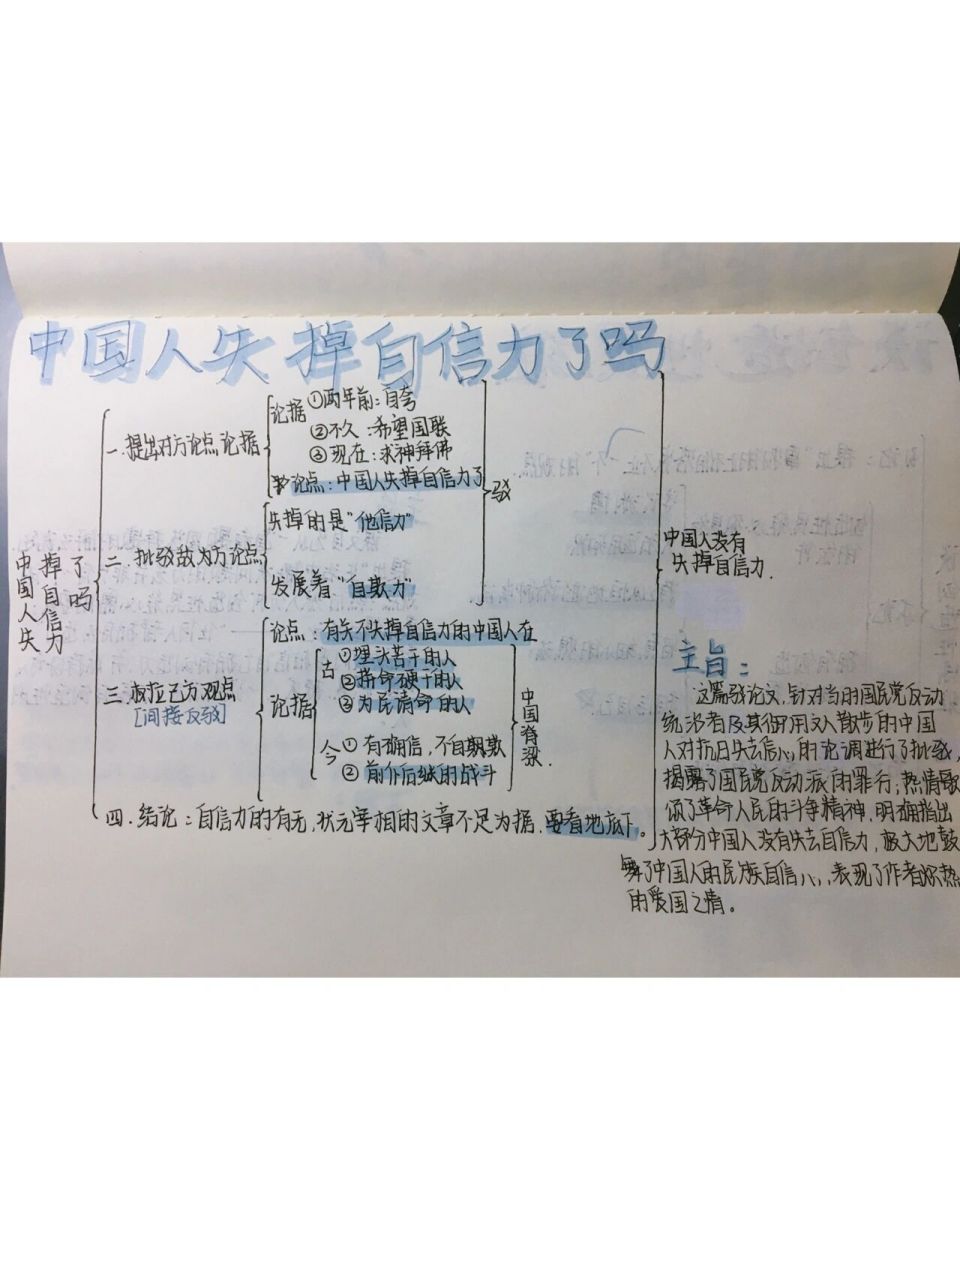 中国人失掉自信力了吗
中国人失
掉自信力
了吗
一.提出对方论点论据
论据 ①两年前:自夸
②不久:希望国联
③现在:求神拜佛
论点:中国人失掉自信力了
驳
二.批驳敌为方论点
失掉的是“他信力”
发展着“自欺力”
三.树立己方观点
[间接反驳]
论点:有失不失掉自信力的中国人在
论据
古 ①埋头苦干的人
②拼命硬干的人
③为民请命的人
今 ①有确信,不自期欺
②前仆后继的战斗
中国脊梁.
四.结论:自信力的有无,状元宰相的文章不足为据,要看地底下。
中国人没有
失掉自信力.
主旨:
这篇驳论文,针对当的国民党反动
统治者及其御用文人散步的中国
人对抗日失去信心的论调进行了批驳,
揭露了国民党反动派的罪行,热情歌
颂了革命人民的斗争精神,明确指出
大部分中国人没有失去自信力,极大地鼓
舞了中国人的民族自信心,表现了作者炽热
的爱国之情。